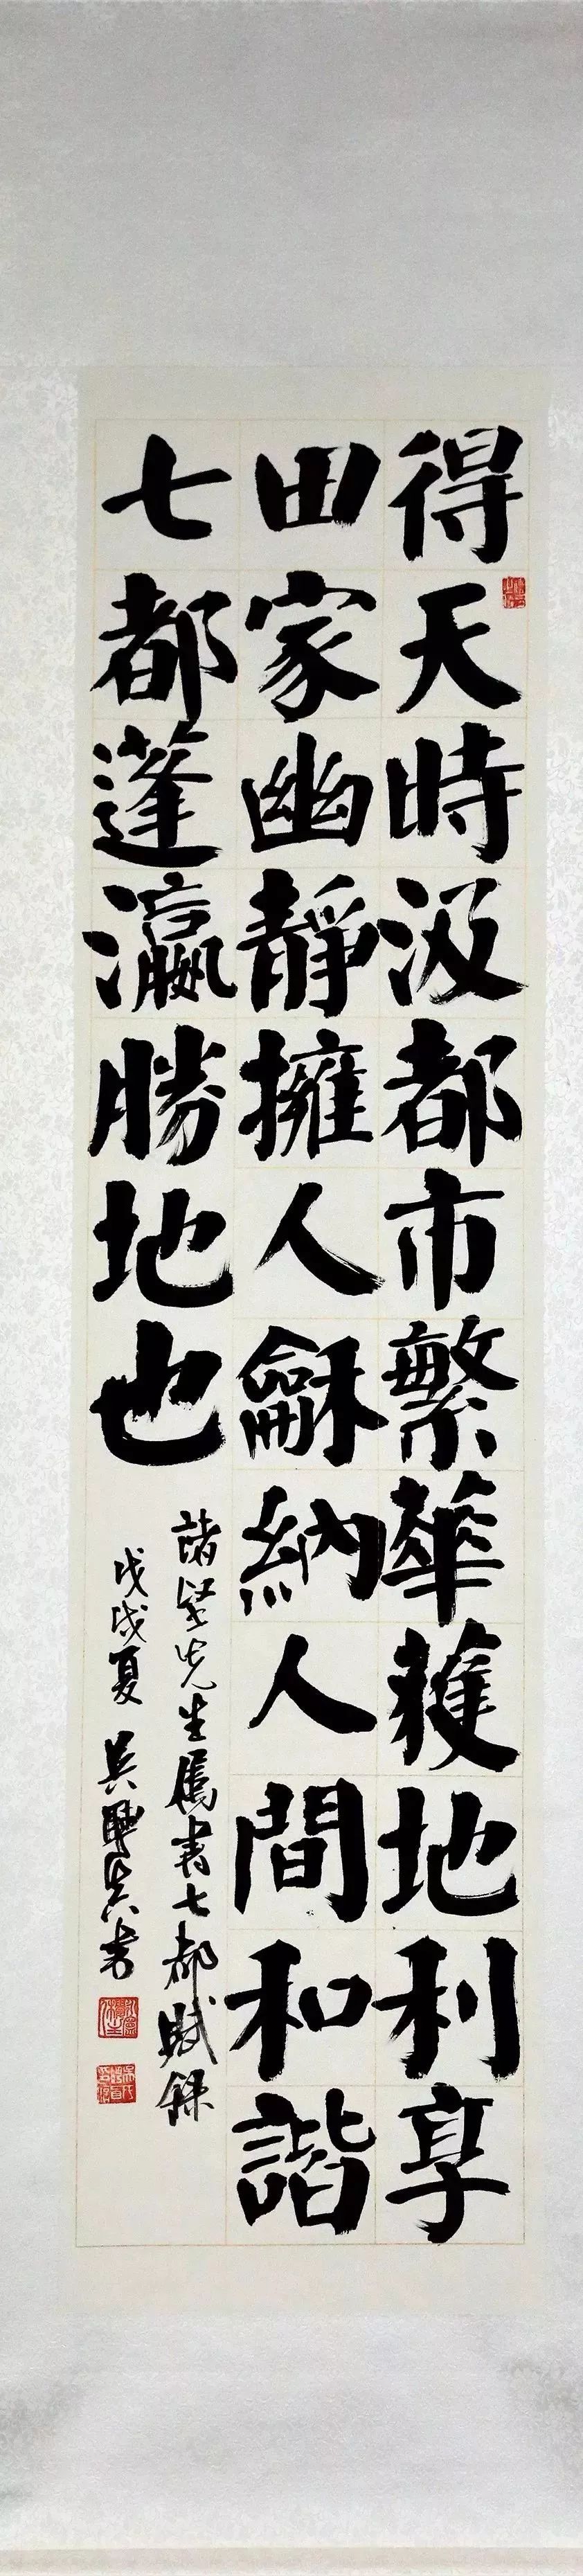 得天時汲都市繁華蒦地利享
田家幽靜擁人龢納人間和諧
七都蓬瀛勝地也
諸堅先生屬書七都賦錄
戊戌夏 吳
書